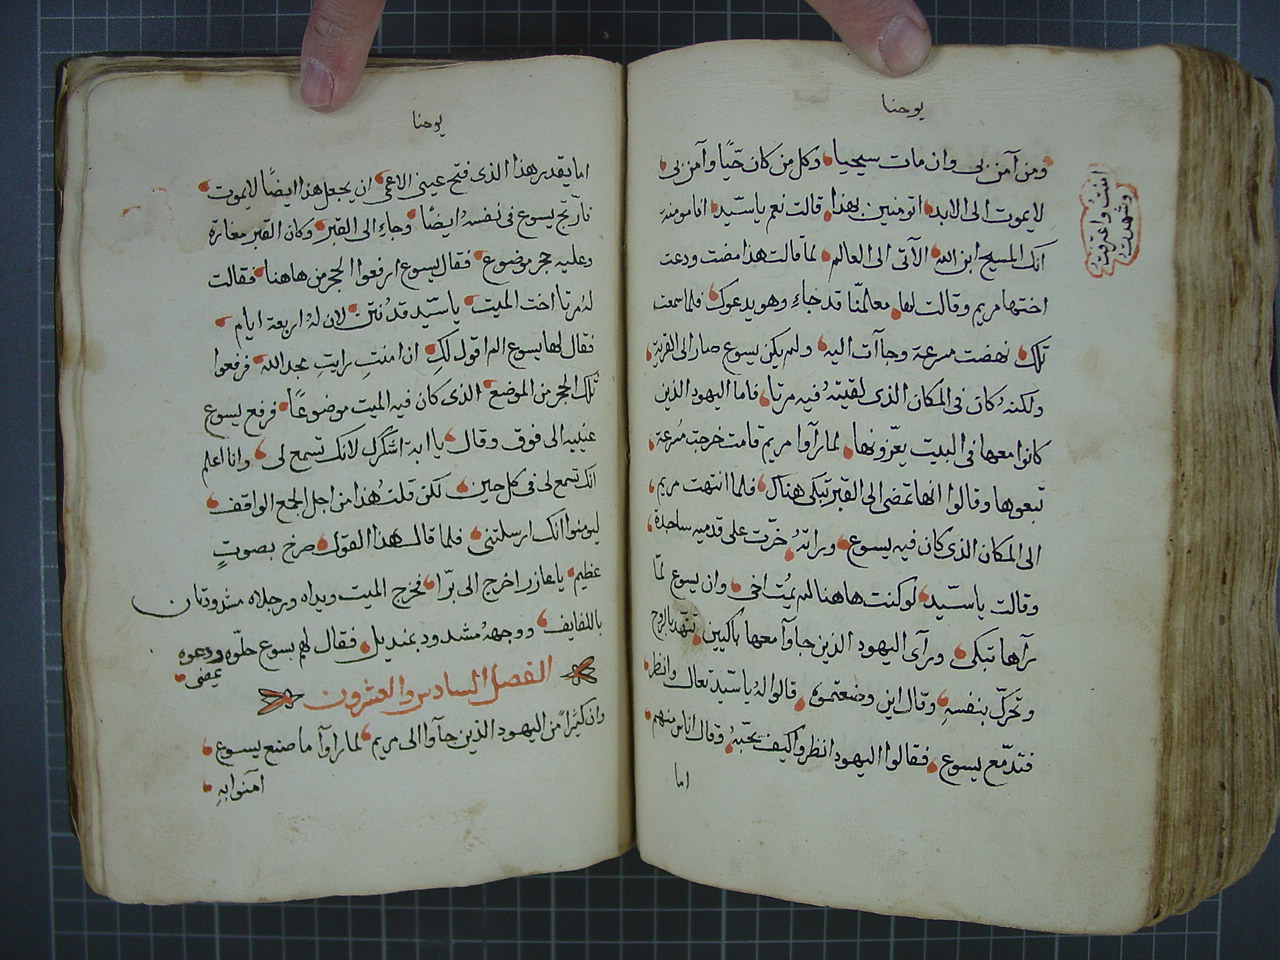 يوحنا
ومن آمن بي وان مات سيحيا وكل من كان حيًا وآمن بي
لا يموت الى الابد اتومنين بهذا قالت نعم يا سيّد انا مومنه
انك المسيح ابن الله الآتى الى العالم لمّا قالت هذا مضت ودعت
اختها مريم وقالت لها معلمنّا قد جاءِ وهو يدعوك فلما سمعت
تلك نهضت مسرعة وجاآت اليه ولم يكن يسوع صار الى القرية
ولكنهُ كان فى المكان الذى لقيتهُ فيه مرتا فاما اليهود الذين
كانوا معها فى البيت يعّزونها لما رآوا مريم قامت خرجت مُسرعة
تبعوها وقالوا انها تمضى الى القبر تبكى هناك فلما انتهت مريم
الى المكان الذى كان فيه يسوع وراتهُ خرّت على قدميه ساجدة
وقالت يا سيّد لو كنت هاهنا لم يمُت اخى وان يسوع لمّا
رآها تبكى وراى اليهود الذين جاوآ معها باكيين تنهّد بالروح
وتحرّك بنفسهِ وقال اين وضعتموه قالوا لهُ يا سيّد تعال وانظر
فتدمّع يسوع فقالوا اليهود انظروا كيف يحّبهُ وقال اناس منهم
اما
انت واعترفت
وشهدت
يوحنا
اما يقدر هذا الذى فتح عينى الاعمى ان يجعل هذا ايضًا لا يموت
فارتج يسوع فى نفسهُ ايضًا وجاءِ الى القبر وكان القبر مغارة
وعليه حجر موضوع فقال يسوع ارفعوا الحجر من هاهنا فقالت
لهُ مرتا اخت الميت يا سيّد قد نُتن لان لهُ اربعة ايام
فقال لها يسوع الم اقول لكِ ان امنتِ رايتِ مجد الله فرفعوا
تلك الحجر من الموضع الذى كان فيه الميت موضوعًا فرفع يسوع
عينيه الى فوق وقال يا ابة اشكرك لانك تسمع لى وانا اعلم
انك تسمع لى فى كل حين لكن قلتُ هذا من اجل الجمع الواقف
ليومنوا انك ارسلتنى فلما قال هذا القول صرخ بصوتٍ
عظيم يا عازر اخرج الى برّا فخرج الميت ويداه ورجلاه مشدودتان
باللفايف ووجههُ مشدود بمنديل فقال لهم يسوع حلّوه ودعوه
يمضى
الفصل السادس والعشرون
وان كثيرًا من اليهود الذين جآوا الى مريم لما رآوآ ما صنع يسوع
آمنوا بهِ